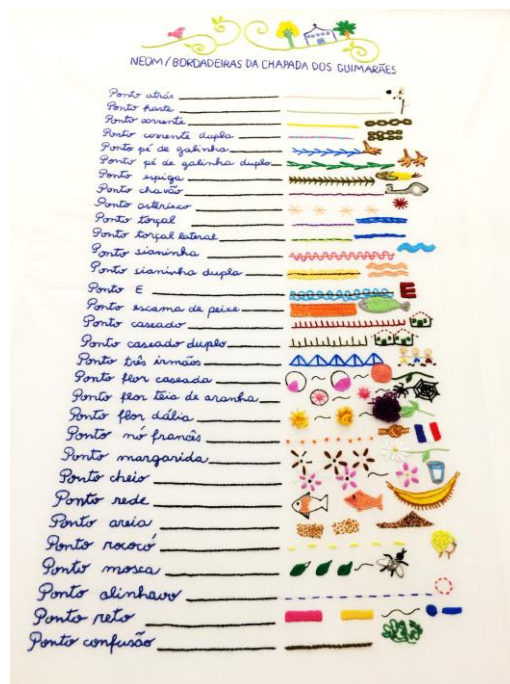 NEOM/BORDADEIRAS DA CHAPADA DOS GUIMARÃES
Ponto atrás
Ponto haste
Ponto corrente
Ponto corrente dupla
Ponto pé de galinha
Ponto pé de galinha duplo
Ponto espiga
Ponto chavão
Ponto asterisco
Ponto torçal
Ponto torçal lateral
Ponto sianinha
Ponto sianinha dupla
Ponto E
E
Ponto escama de peixe
Ponto caseado
Ponto caseado duplo
Ponto três irmãos
Ponto flor caseada
Ponto flor teia de aranha
Ponto flor dália
Ponto nó francês
Ponto margarida
Ponto cheio
Ponto rede
Ponto areia
Ponto rococó
Ponto mosca
Ponto alinhavo
Ponto reto
Ponto confusão